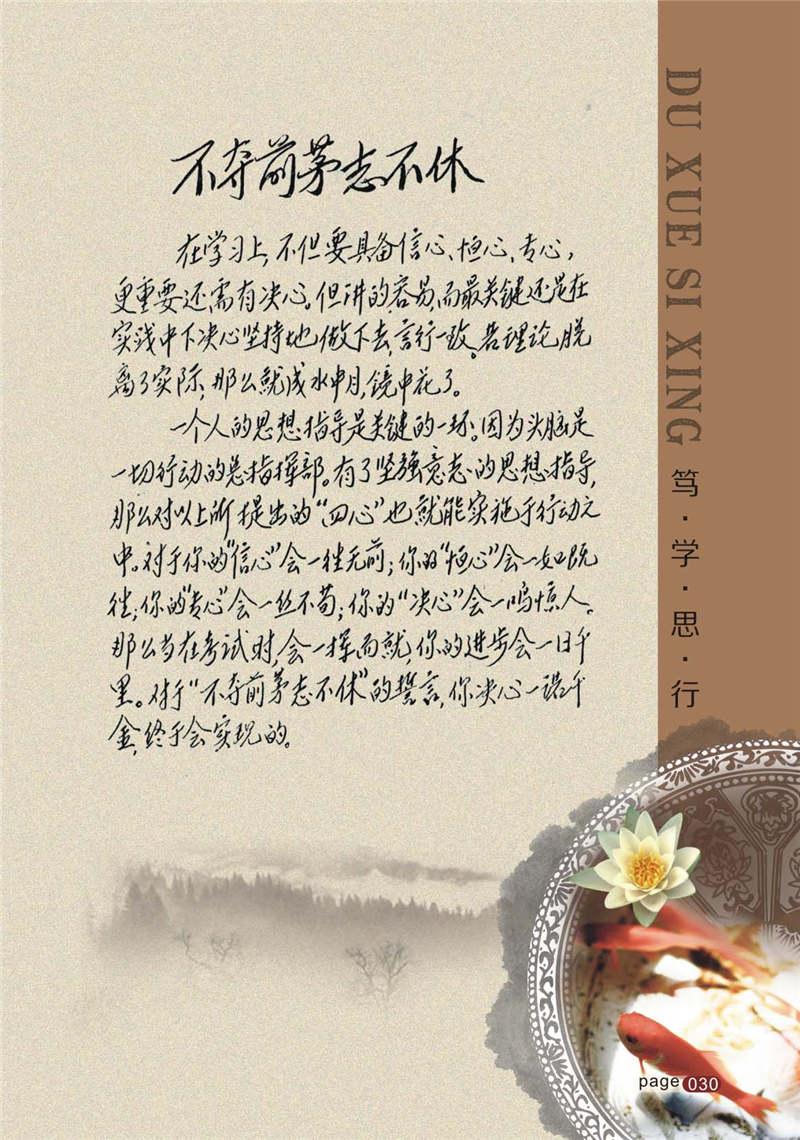 不夺前茅志不休
在学习上,不但要具备信心、恒心、专心,
更重要还需有决心。但讲的容易,而最关键还是在
实践中下决心坚持地做下去,言行一致。若理论脱
离了实际,那么就成水中月,镜中花了。
一个人的思想指导是关键的一环。因为头脑是
一切行动的总指挥部。有了坚强意志的思想指导,
那么对以上所提出的“四心”也就能实施于行动之
中。对于你的“信心”会一往无前;你的“恒心”会一如既
往;你的“专心”会一丝不苟;你的“决心”会一鸣惊人。
那么当在考试时,会一挥而就,你的进步会一日千
里。对于“不夺前茅志不休”的誓言,你决心一诺千
金,终于会实现的。
DU XUE SI XING
笃·学·思·行
page 030